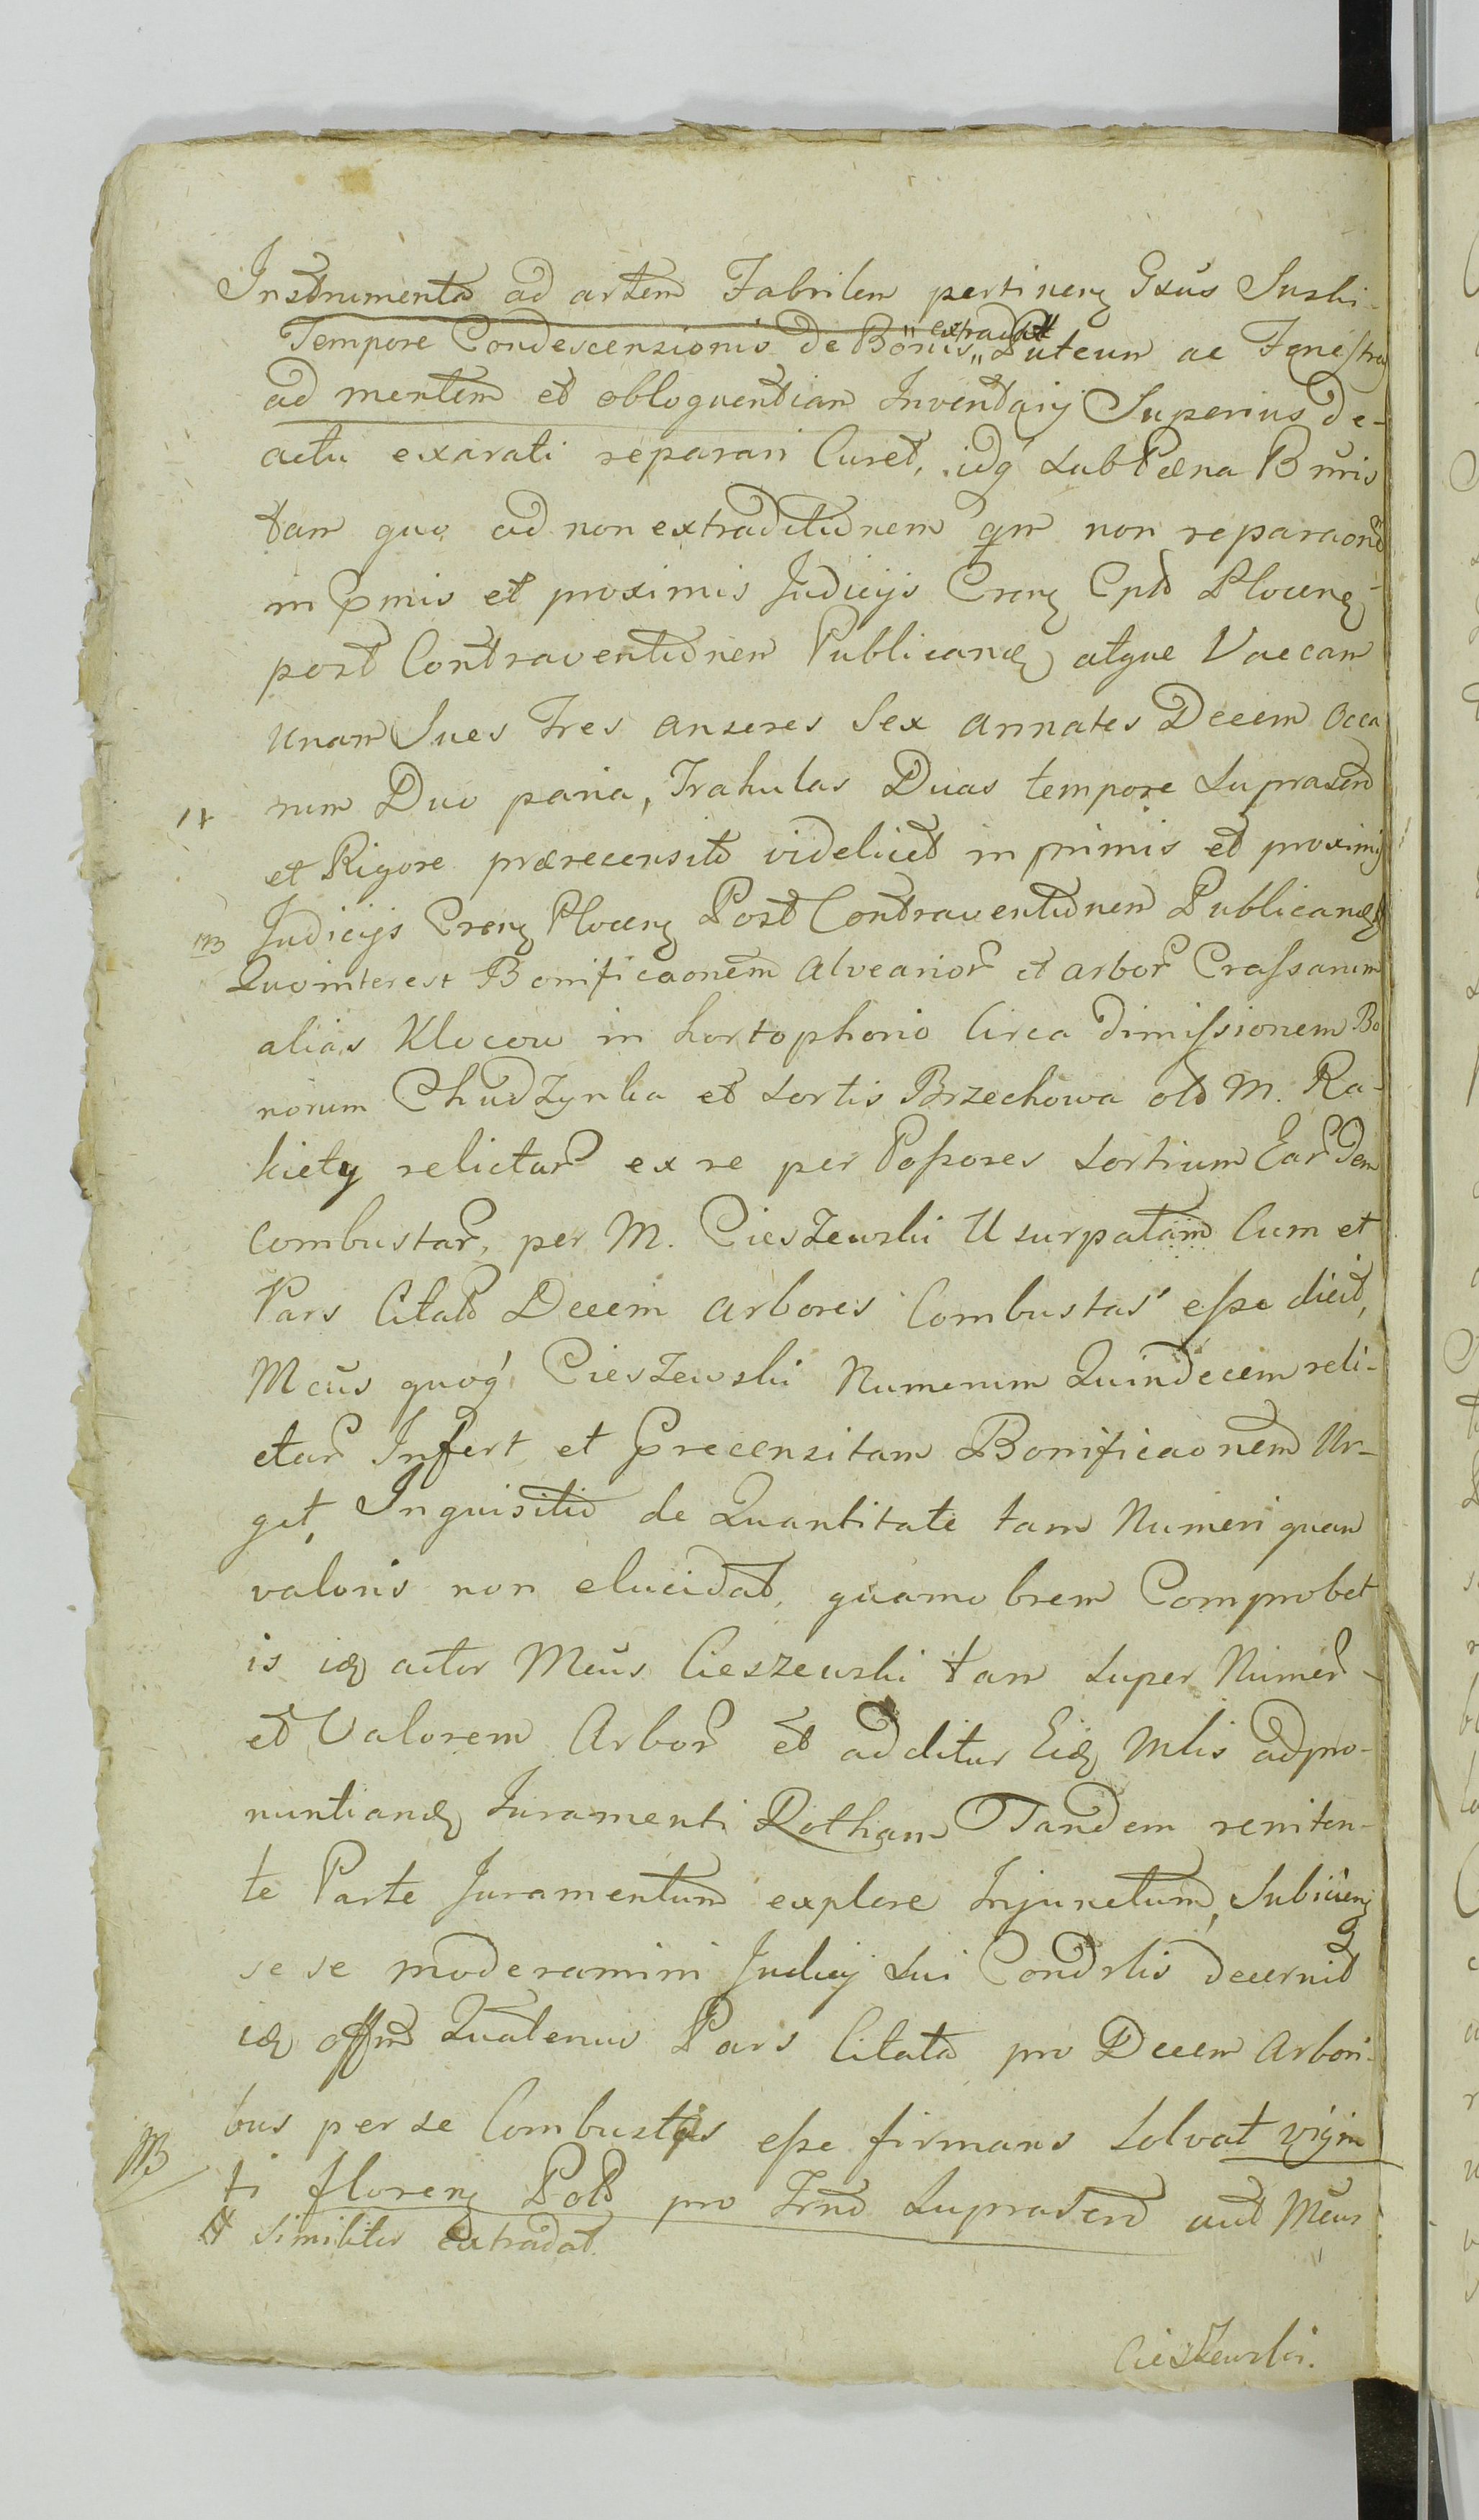 Instrumenta ad artem Fabrilem pertineñ Gsus Suski
Tempore Condescensionis de Bonis „ extradat „ Puteum ac Fenestras
ad mentem et obloquentiam Inventarij Superius de-
actu exarati reparari Curet, idq́ sub Pæna Buris
tam quo ad non extraditionem qm non reparaonẽ
in Primis et proximis Judicijs Cren Cptt Plocen
post Contraventionem Publicand atque Vaccam
unam Sues tres anseres Sex annates Decem occa
rum Duo paria, Trahulas Duas tempore suprascrõ
et Rigore prærecensito videlicet in primis et proximis
Judicijs Cren Plocen Post Contraventionem Publicand
Quo interest Bonificaonem alvearior et arbor Crassarum
alias Klocow in hortophorio Circa dimissionem Bo
norum Chudzynka et sortis Brzechowa old M. Ra-
kiety relictar ex re per Possores sortium Ear dem
combustar, per M. Cieszewski Usurpatam Cum et
Pars Citata Decem arbores Combustas esse dicit,
Mcus quoq́ Cieszewski Numerum Quindecem reli-
ctar Infert et Precensitam Bonificaonem Ur-
get, Inquisitio de Quantitate tam Numeri quam
valoris non elucidat, quamo brem Comprobet
is id actor Mcus Cieszewski tam super Numer
et Valorem Arbor et additur Eid Mlis ad pro-
nuntiand Juramenti Rotham Tandem reniten-
te Parte Juramentum explere Injunctum, Subiicien
se se moderamini Judicij sui Condrlis decernit
id offm Quatenus Pars Citata pro Decem Arbori-
bus per se Combustis esse firmans solvat vigin
ti floren Pol pro Trno suprascro aut Mcus
# similiter extradat.
Cieszewski.